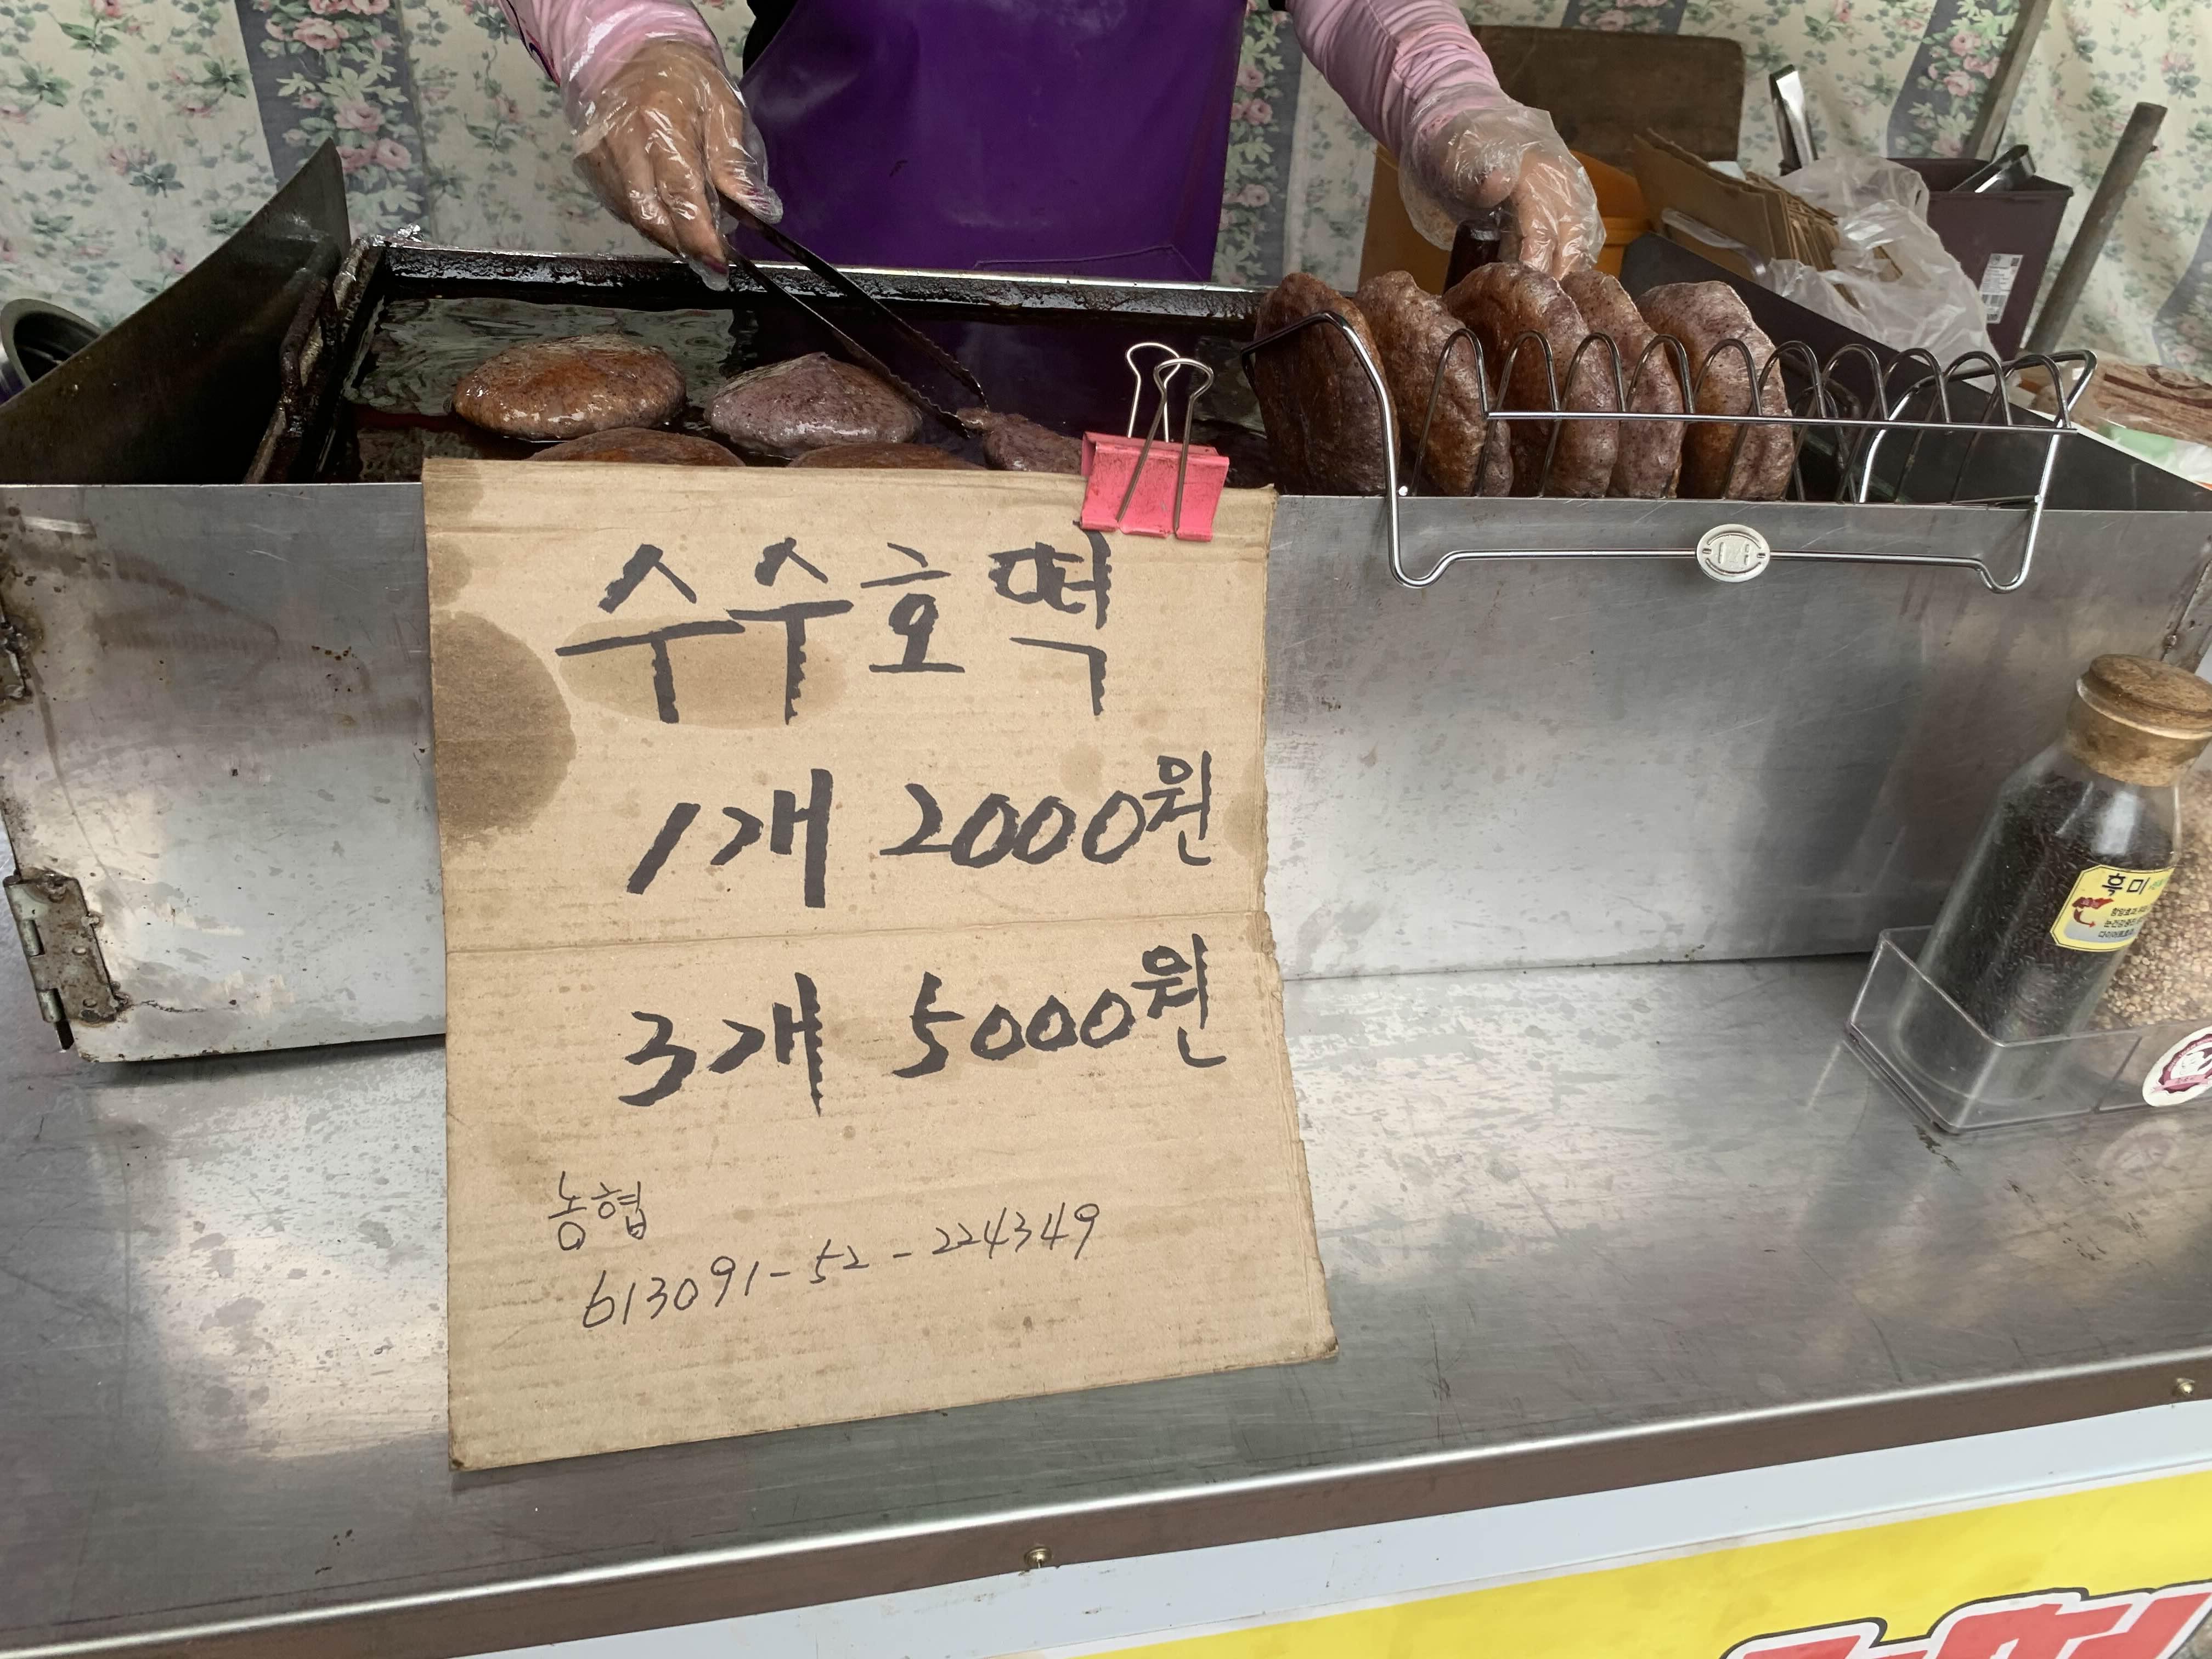 수수호떡
1개 2000원
3개 5000원
농협
613091-52-224349
흑미